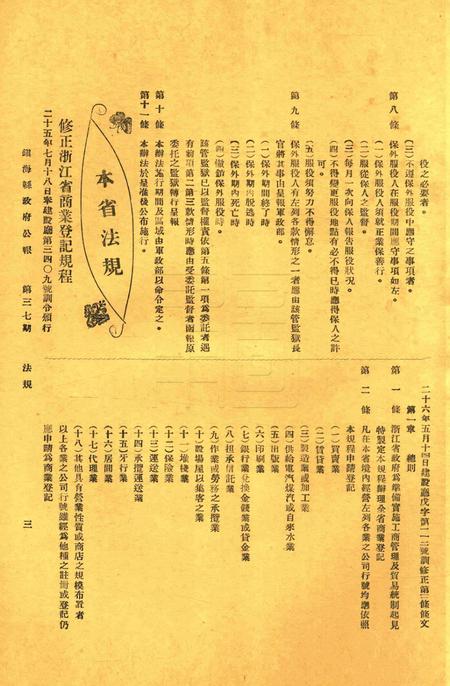 役之必要者。
(三)不遵保外服役中應守之事項者。
第八條 保外服役人在服役期間應守事項如左。
(一)保外服役人須就正業保善行。
(二)服從保人之監督。
(三)每月一次向保人報告服役狀況。
(四)不得變更服役地點有必不得已時應得保人之許
(五)服役應努力不得懈怠。
第九條 保外服役人有左列各款情形之一者應由該管監獄長
官將其事由呈報軍政部。
(一)保外期間終了時
(二)保外期內脫逃時
(三)保外期內死亡時
(四)撤銷保外服役時。
該管監獄已以監督權責依第五條第一項為委託者遇
有前項第二第三款情形時應由受委託監督者函報原
委託之監獄轉行呈報
第十條 本辦法施行期間及區域由軍政部以命令定之。
第十一條 本辦法於呈准後公布施行。
本省法規
修正浙江省商業登記規程
二十五年七月十八日奉建設廳第二四〇九號訓令頒行
鎮海縣政府公報 第三七期 法規 三
二十六年五月十四日建設廳戊字第二一二號訓修正第二條條文
第一章 總則
第一條 浙江省政府為準備實施工商管理及貿易統制起見
特製定本規程辦理全省商業登記
第二條 凡在本省境內經營左列各業之公司行號均應依照
本規程申請登記
(一)買賣業
(二)賃貸業
(三)製造業或加工業
(四)供給電汽煤汽或自來水業
(五)出版業
(六)印刷業
(七)銀行業兌換金錢業或貸金業
(八)担承信託業
(九)作業或勞務之承攬業
(十)設場屋以集客之業
(十一)堆棧業
(十二)保險業
(十三)運送業
(十四)承攬運送業
(十五)牙行業
(十六)居間業
(十七)代理業
(十八)其他具有營業性質或商店之規模布置者
以上各業之公司行號雖經為他種之註冊或登記仍
應申請為商業登記